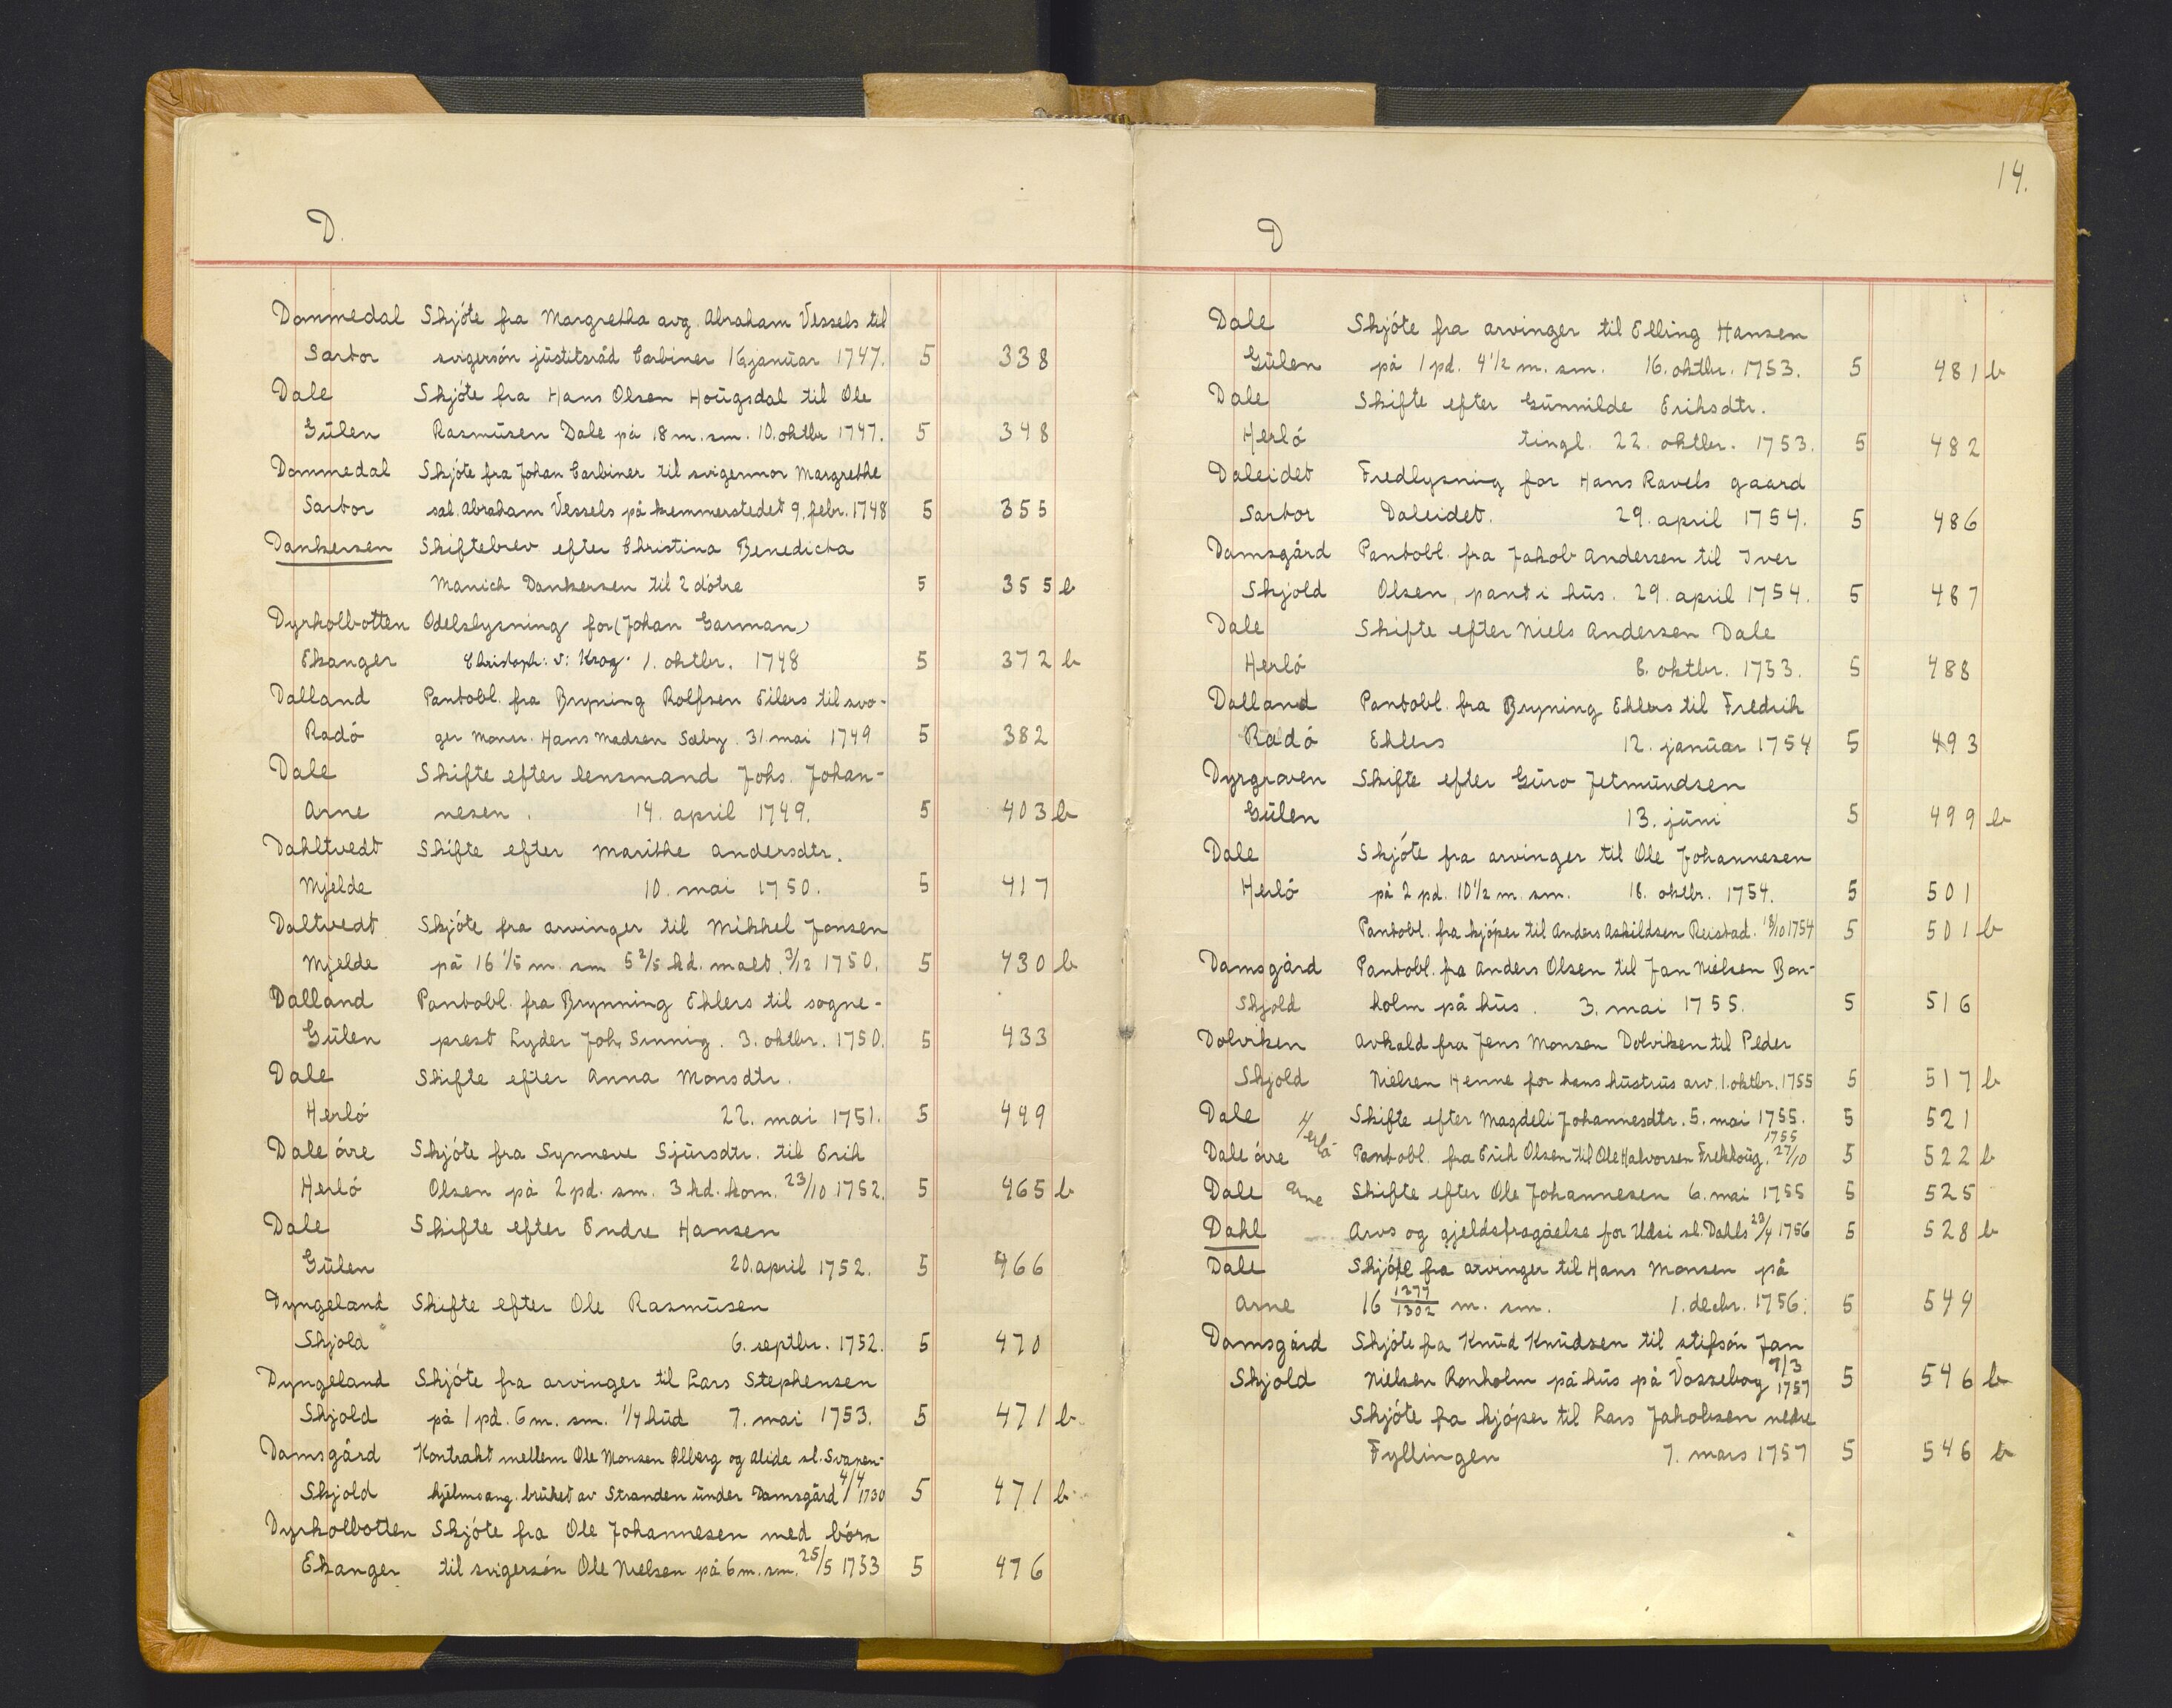 D.
Dommedal Skjöte fra Margretha avg. Abraham Vessels til
Sartor svigersön justitsråd Carbiner 16 januar 1747. 5 338
Dale Skjöte fra Hans Olsen Hougsdal til Ole
Gulen Rasmusen Dale på 18 m. sm. 10. oktbr 1747. 5 348
Dommedal Skjöte fra Johan Carbiner til svigermor Margrethe
Sartor sal. Abraham Vessels på kremmerstedet 9. febr. 1748 5 355
Dankersen Skiftebrev efter Christina Benedicta
Manich Dankersen til 2 dötre 5 355 b
Dyrkolbotten Odelslysning for (Johan Garman)
Ekanger Christoph: v: Krog. 1. oktbr. 1748 5 372 b
Dalland Pantobl. fra Bryning Rolfsen Eilers til svo-
Radö ger Monsr. Hans Madsen Sæby. 31. mai 1749 5 382
Dale Skifte efter lensmand Johs. Johan-
Arne nesen. 14. april 1749. 5 403 b
Dahltvedt Skifte efter Marithe Andersdtr.
Mjelde 10. mai 1750. 5 417
Daltvedt Skjöte fra arvinger til Mikkel Jonsen
Mjelde på 16 1/5 m. sm 5 2/5 kd. malt. 3/12 1750. 5 430 b
Dalland Pantobl. fra Brynning Ehlers til sogne-
Gulen prest Lyder Joh. Sinnig. 3. oktbr. 1750. 5 433
Dale Skifte efter Anna Monsdtr.
Herlö 22. mai 1751. 5 449
Dale övre Skjöte fra Synneve Sjursdtr. til Erik
Herlö Olsen på 2 pd. sm. 3 kd. korn. 23/10 1752. 5 465 b
Dale Skifte efter Endre Hansen
Gulen 20. april 1752. 5 466
Dyngeland Skifte efter Ole Rasmusen
Skjold 6. septbr. 1752. 5 470
Dyngeland Skjöte fra arvinger til Lars Stephensen
Skjold på 1 pd. 6 m. sm. 1/4 hud 7. mai 1753. 5 471 b.
Damsgård Kontrakt mellem Ole Monsen Ølberg og Alida sl. Svanen-
Skjold hjelms ang. bruket av Stranden under Damsgård 4/4 1730 5 471 b.
Dyrkolbotten Skjöte fra Ole Johannesen med börn
Ekanger til svigersön Ole Nielsen på 6 m. sm. 25/5 1753 5 476
14.
D
Dale Skjöte fra arvinger til Elling Hansen
Gulen på 1 pd. 4 1/2 m. sm. 16. oktbr. 1753. 5 481 b
Dale Skifte efter Gunnilde Eriksdtr.
Herlö tingl. 22. oktbr. 1753. 5 482
Daleidet Fredlysning for Hans Ravels gaard
Sartor Daleidet. 29. april 1754. 5 486
Damsgård Pantobl. fra Jakob Andersen til Iver
Skjold Olsen, pant i hus. 29. april 1754. 5 487
Dale Skifte efter Niels Andersen Dale
Herlö 8. oktbr. 1753. 5 488
Dalland Pantobl. fra Bryning Ehlers til Fredrik
Radö Ehlers 12. januar 1754 5 493
Dyrgraven Skifte efter Guro Jetmundsen
Gulen 13. juni 5 499 b
Dale Skjöte fra arvinger til Ole Johannesen
Herlö på 2 pd. 10 1/2 m. sm. 18. oktbr. 1754. 5 501
Pantobl. fra kjöper til Anders Askildsen Reistad. 18/10 1754 5 501 b
Damsgård Pantobl. fra Anders Olsen til Jan Nielsen Bon-
Skjold holm på hus. 3. mai 1755. 5 516
Dolviken Avkald fra Jens Monsen Dolviken til Peder
Skjold Nielsen Henne for hans hustrus arv. 1. oktbr. 1755 5 517 b
Dale Herlö Skifte efter Magdeli Johannesdtr. 5. mai 1755. 5 521
Dale övre Pantobl. fra Erik Olsen til Ole Halvorsen Frekhoug. 27/10 1755 5 522 b
Dale Arne Skifte efter Ole Johannesen 6. mai 1755 5 525
Dahl Arvs og gjeldsfragåelse for sl. Dahls 29/4 1756 5 528 b
Dale Skjöte fra arvinger til Hans Monsen på
Arne 16 1277/1302 m. sm. 1. decbr. 1756. 5 544
Damsgård Skjöte fra Knud Knudsen til stifsön Jan
Skjold Nielsen Ronholm på hus på Vossebog 7/3 1757 5 546 b
Skjöte fra kjöper til Lars Jakobsen nedre
Fyllingen 7. mars 1757 5 546 b